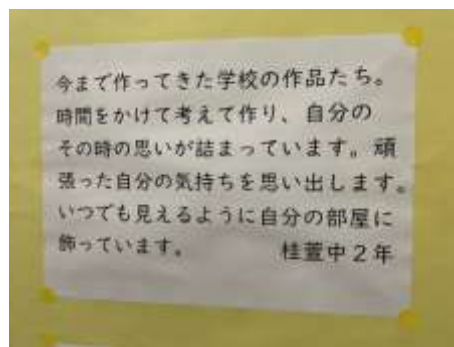 今まで作ってきた学校の作品たち。
時間をかけて考えて作り、自分の
その時の思いが詰まっています。頑
張った自分の気持ちを思い出します。
いつでも見えるように自分の部屋に
飾っています。　　　桂萱中２年